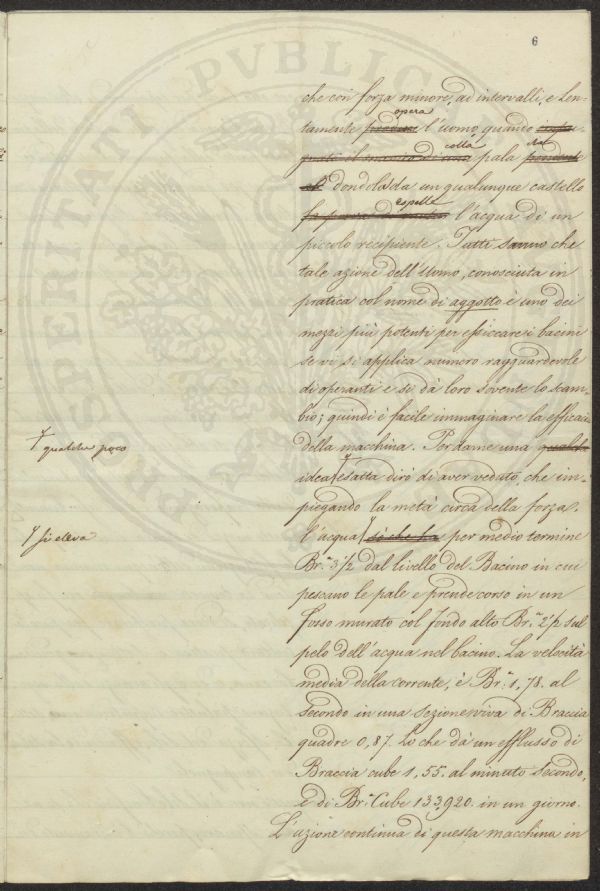 6
che con forza minore, ad intervalli, e Len-
opera
tamente l'uomo quando
colla da
pala
dondolada un qualunque castello
espelle
l'acqua di un
piccolo recipiente. Tutti sanno che
tale azione dell'Uomo, conosciuta in
pratica col nome di aggotto è uno dei
mezzi più potenti per essiccare i bacini
se vi si applica numero ragguardevole
di operanti e si dà loro sovente lo scam-
bio; quindi è facile immaginare la efficacia
della macchina. Per darne una
qualche poco
idea esatta dirò di aver veduto, che im-
piegando la metà circa della forza.
l'acqua si che ha per medio termine
si eleva
Br.ª 3 1/2 dal livello del Bacino in cui
pescano le pale e prende corso in un
fosso murato col fondo alto Br.ª 2 1/2 sul
pelo dell'acqua nel bacino. La velocità
media della corrente, è Br.ª 1,78. al
secondo in una sezione viva di Braccia
quadre 0,87. Lo che dà un efflusso di
Braccia cube 1,55. al minuto secondo,
e di Br.ª Cube 133,920. in un giorno.
L'azione continua di questa macchina in
PROSPERITATI PVBLICAE